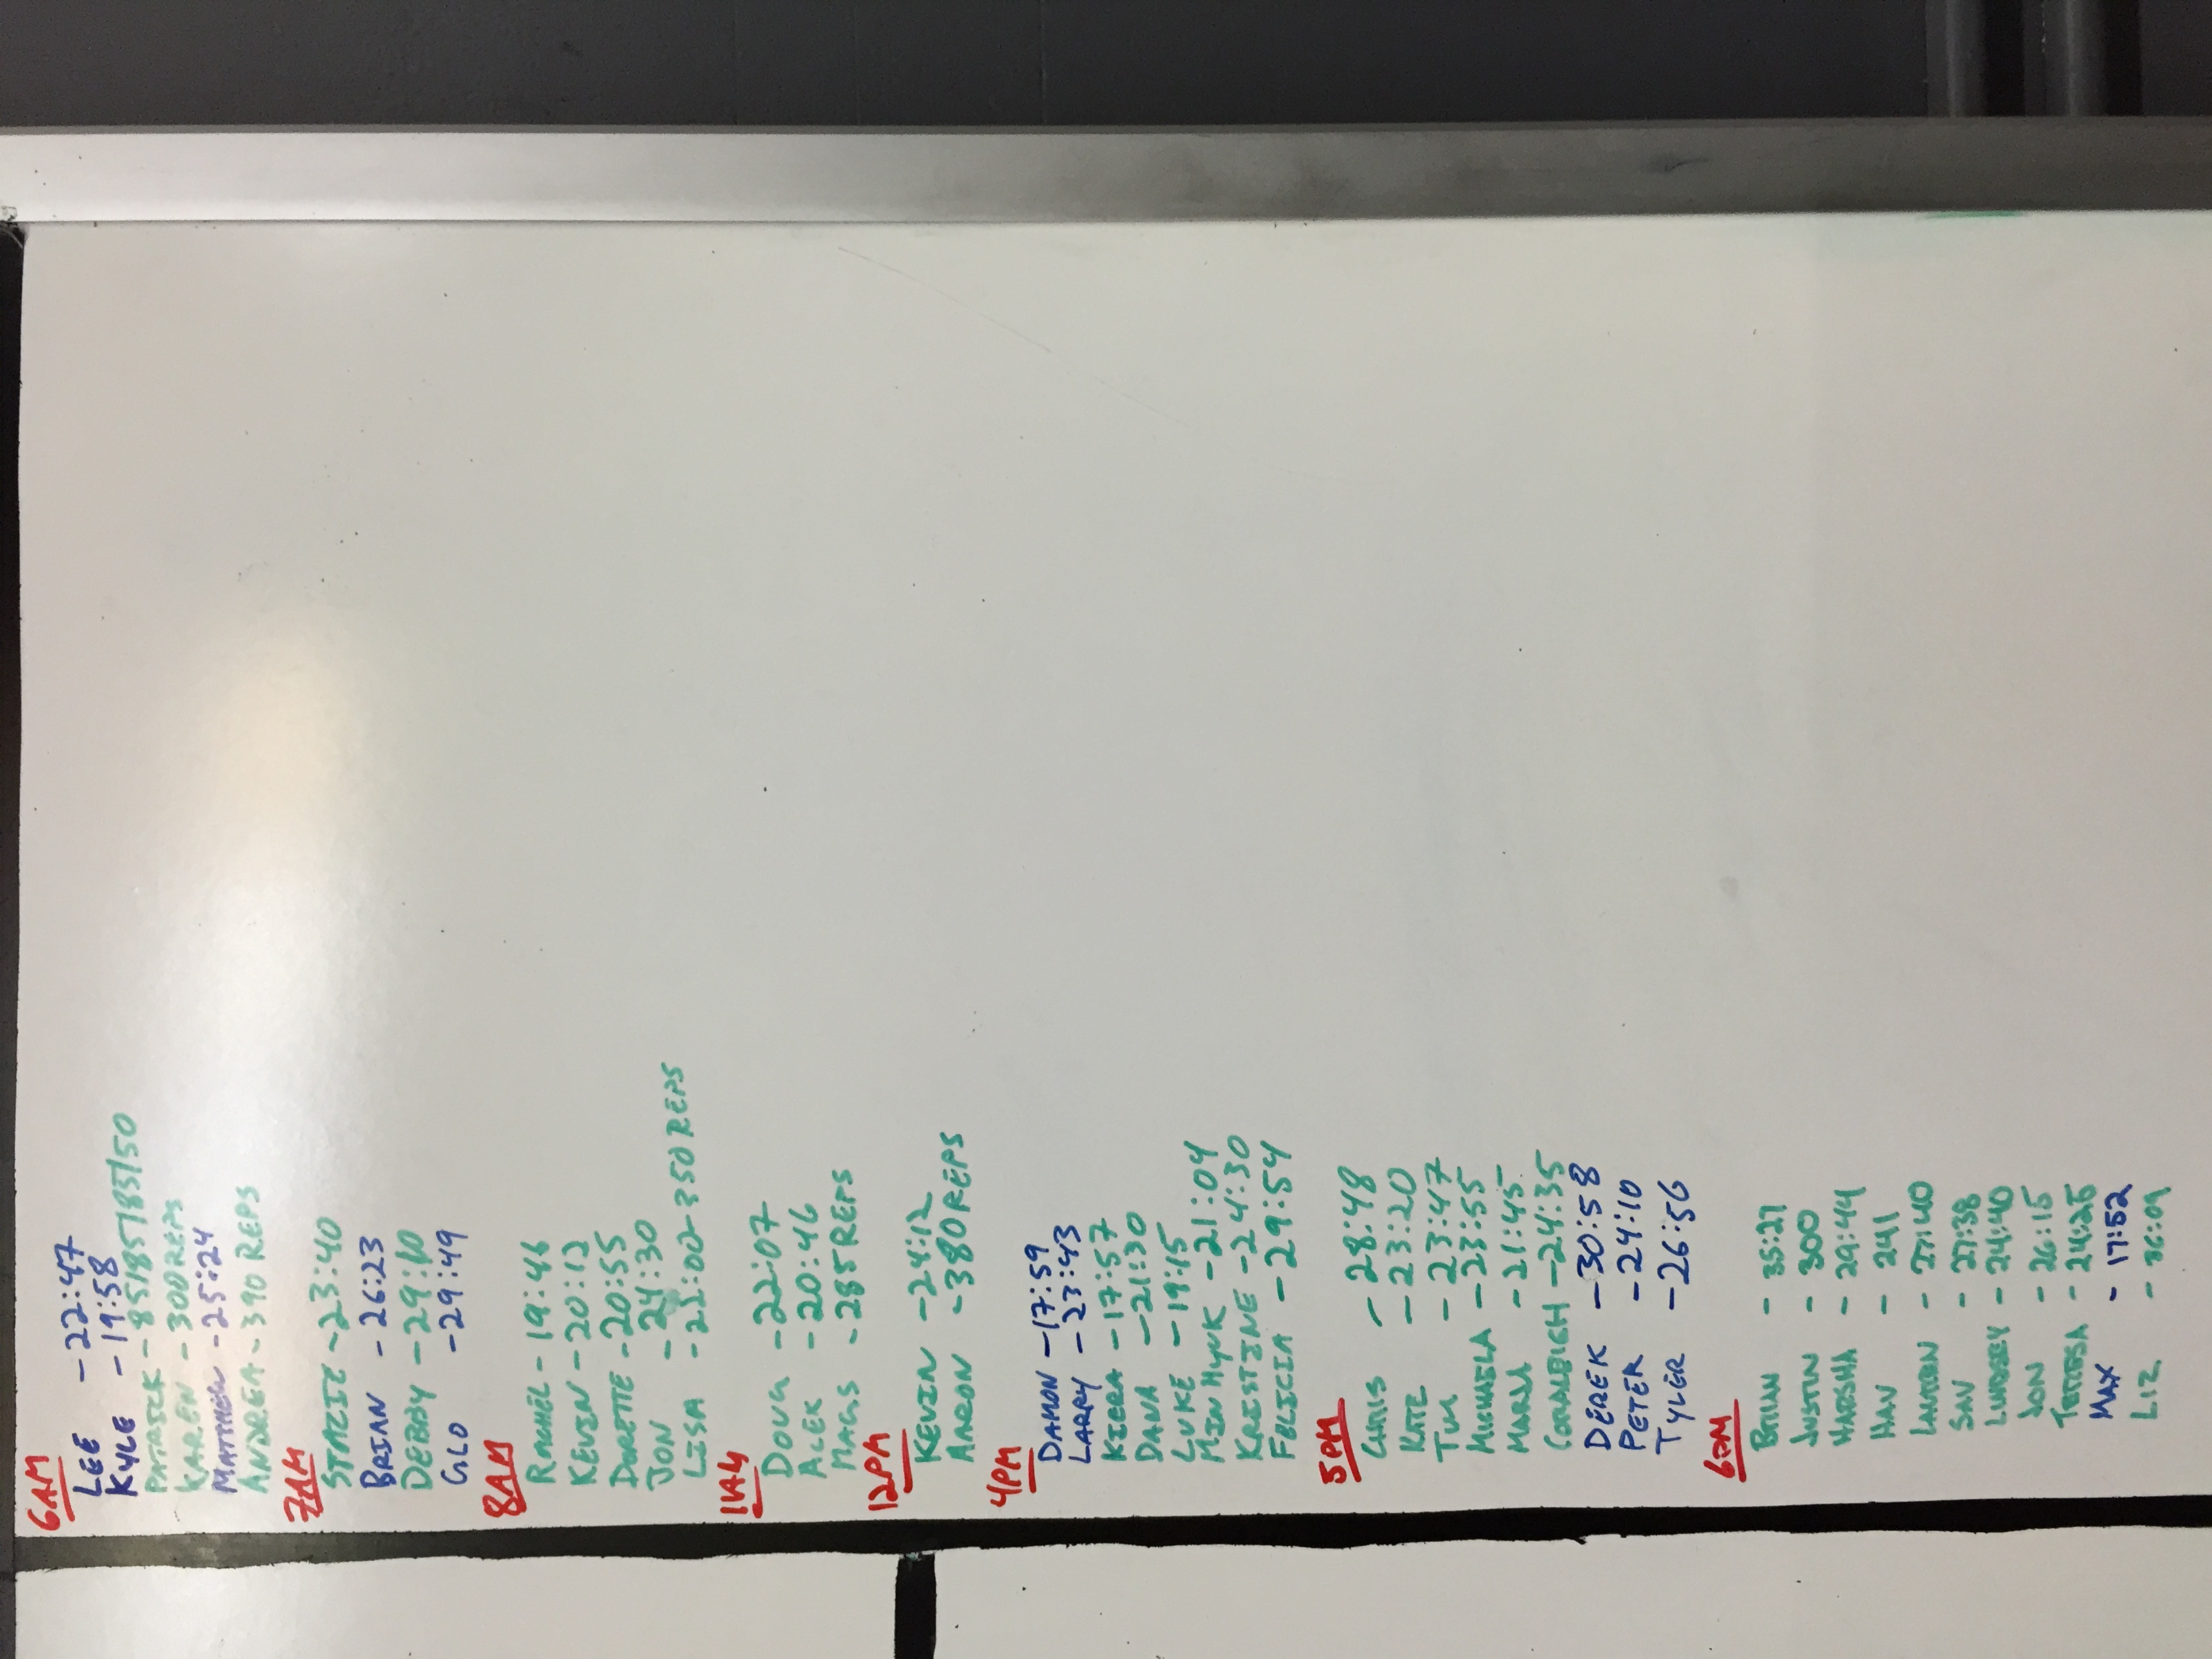 6AM
LEE - 22:47
KYLE - 19:58
PATRICK - 85/85/85/50
KAREN - 300 REPS
MATTHEW - 25:24
ANDREA - 390 REPS
7AM
STACIE - 23:40
BRIAN - 26:23
DEBBY - 29:10
GLO - 29:49
8AM
RACHEL - 19:46
KEVIN - 20:12
DORETTE - 20:55
JON - 24:30
LISA - 22:00 - 350 REPS
DOUG - 22:07
ALEX - 20:46
MAGS - 285 REPS
12PM
KEVIN - 24:12
AARON - 380 REPS
4PM
DAMON - 17:59
LARRY - 23:43
KIERA - 17:57
DANA - 21:30
LUKE - 19:15
MIN HYUK - 21:04
KRISTINE - 24:30
FELICIA - 29:54
5PM
CHRIS - 28:48
KATE - 23:20
TIM - 23:47
MICHAELA - 23:55
MARIA - 21:45
CORALEIGH - 24:35
DEREK - 30:58
PETER - 24:10
TYLER - 26:56
6PM
BRIAN - 35:27
JUSTIN - 300
HARSHA - 29:44
NAV - 241
LAUREN - 27:40
SAV - 27:38
LINDSEY - 24:40
JON - 26:15
TERESA - 24:26
MAX - 17:52
LIZ - 36:09